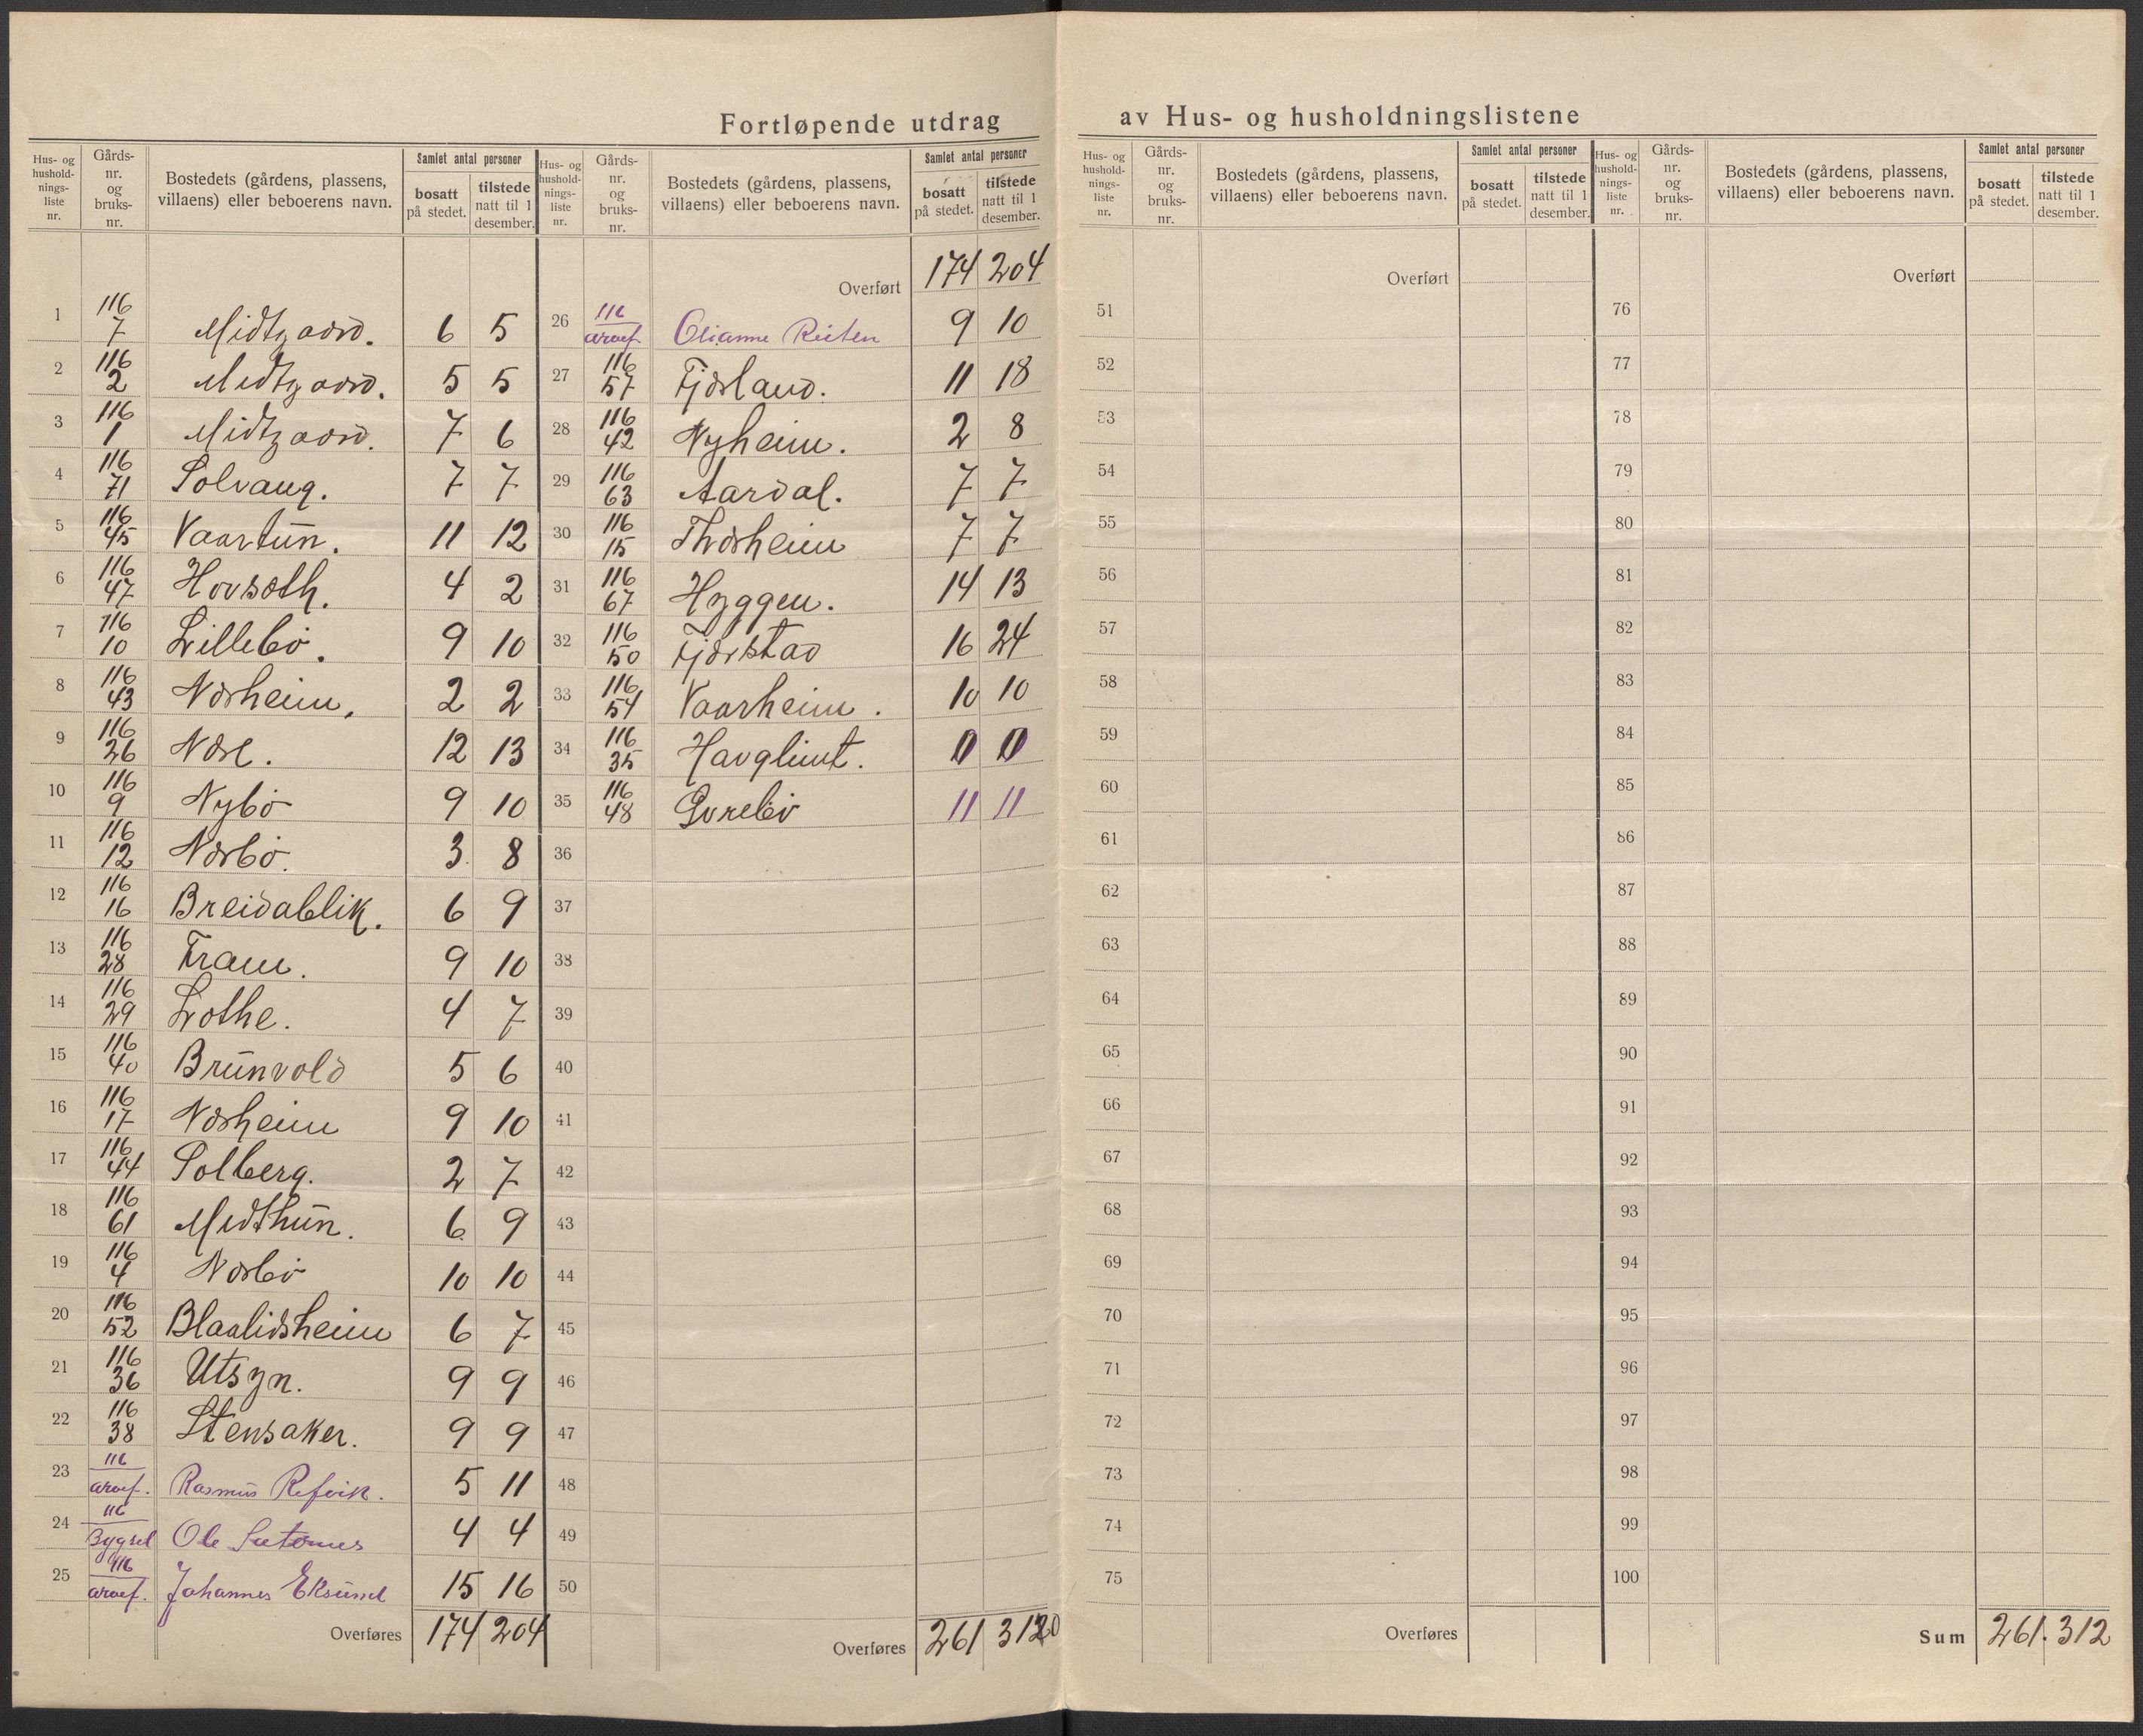 Fortløpende utdrag av Hus- og husholdningslistene
Hus- og hushold-nings-liste nr. Gårds-nr. og bruks-nr. Bostedets (gårdens, plassens, villaens) eller beboerens navn. Samlet antal personer bosatt på stedet. tilstede natt til 1 desember.
1 116 7 Midtgaard. 6 5
2 116 2 Midtgaard. 5 5
3 116 1 Midtgaard. 7 6
4 116 71 Solvang. 7 7
5 116 45 Vaartun. 11 12
6 116 47 Hovsæth. 4 2
7 116 10 Lillebö. 9 10
8 116 43 Nørheim. 2 2
9 116 26 12 13
10 116 9 Nybö 9 10
11 116 12 Nørbö. 3 8
12 116 16 Breidablik. 6 9
13 116 28 Fram. 9 10
14 116 29 Lothe. 4 7
15 116 40 Brunvold 5 6
16 116 17 Nørheim 9 10
17 116 44 Solberg. 2 7
18 116 61 Midthun. 6 9
19 116 4 Nørbö 10 10
20 116 52 Blaalidsheim 6 7
21 116 36 Utsyn. 9 9
22 116 38 Stensaker. 9 9
23 116 Rasmus Refvik. 5 11
24 116 Bygsel Ole Sæternes 4 4
25 116 Johannes Eksund 15 16
Overføres 174 204
Hus- og hushold-nings-liste nr. Gårds-nr. og bruks-nr. Bostedets (gårdens, plassens, villaens) eller beboerens navn. Samlet antal personer bosatt på stedet. tilstede natt til 1 desember.
Overført 174 204
26 116 Olianne Reiten 9 10
27 116 57 Fjørland. 11 18
28 116 42 Nyheim. 2 8
29 116 63 Aardal. 7 7
30 116 15 Thorheim 7 7
31 116 67 Hyggen. 14 13
32 116 50 Fjørstad 16 24
33 116 54 Vaarheim. 10 10
34 116 35 Havglimt. 0 0
35 116 48 Gurebö 11 11
36
37
38
39
40
41
42
43
44
45
46
47
48
49
50
Overføres 261 312
Hus- og hushold-nings-liste nr. Gårds-nr. og bruks-nr. Bostedets (gårdens, plassens, villaens) eller beboerens navn. Samlet antal personer bosatt på stedet. tilstede natt til 1 desember.
Overført
51
52
53
54
55
56
57
58
59
60
61
62
63
64
65
66
67
68
69
70
71
72
73
74
75
Overføres
Hus- og hushold-nings-liste nr. Gårds-nr. og bruks-nr. Bostedets (gårdens, plassens, villaens) eller beboerens navn. Samlet antal personer bosatt på stedet. tilstede natt til 1 desember.
Overført
76
77
78
79
80
81
82
83
84
85
86
87
88
89
90
91
92
93
94
95
96
97
98
99
100
Sum 261. 312